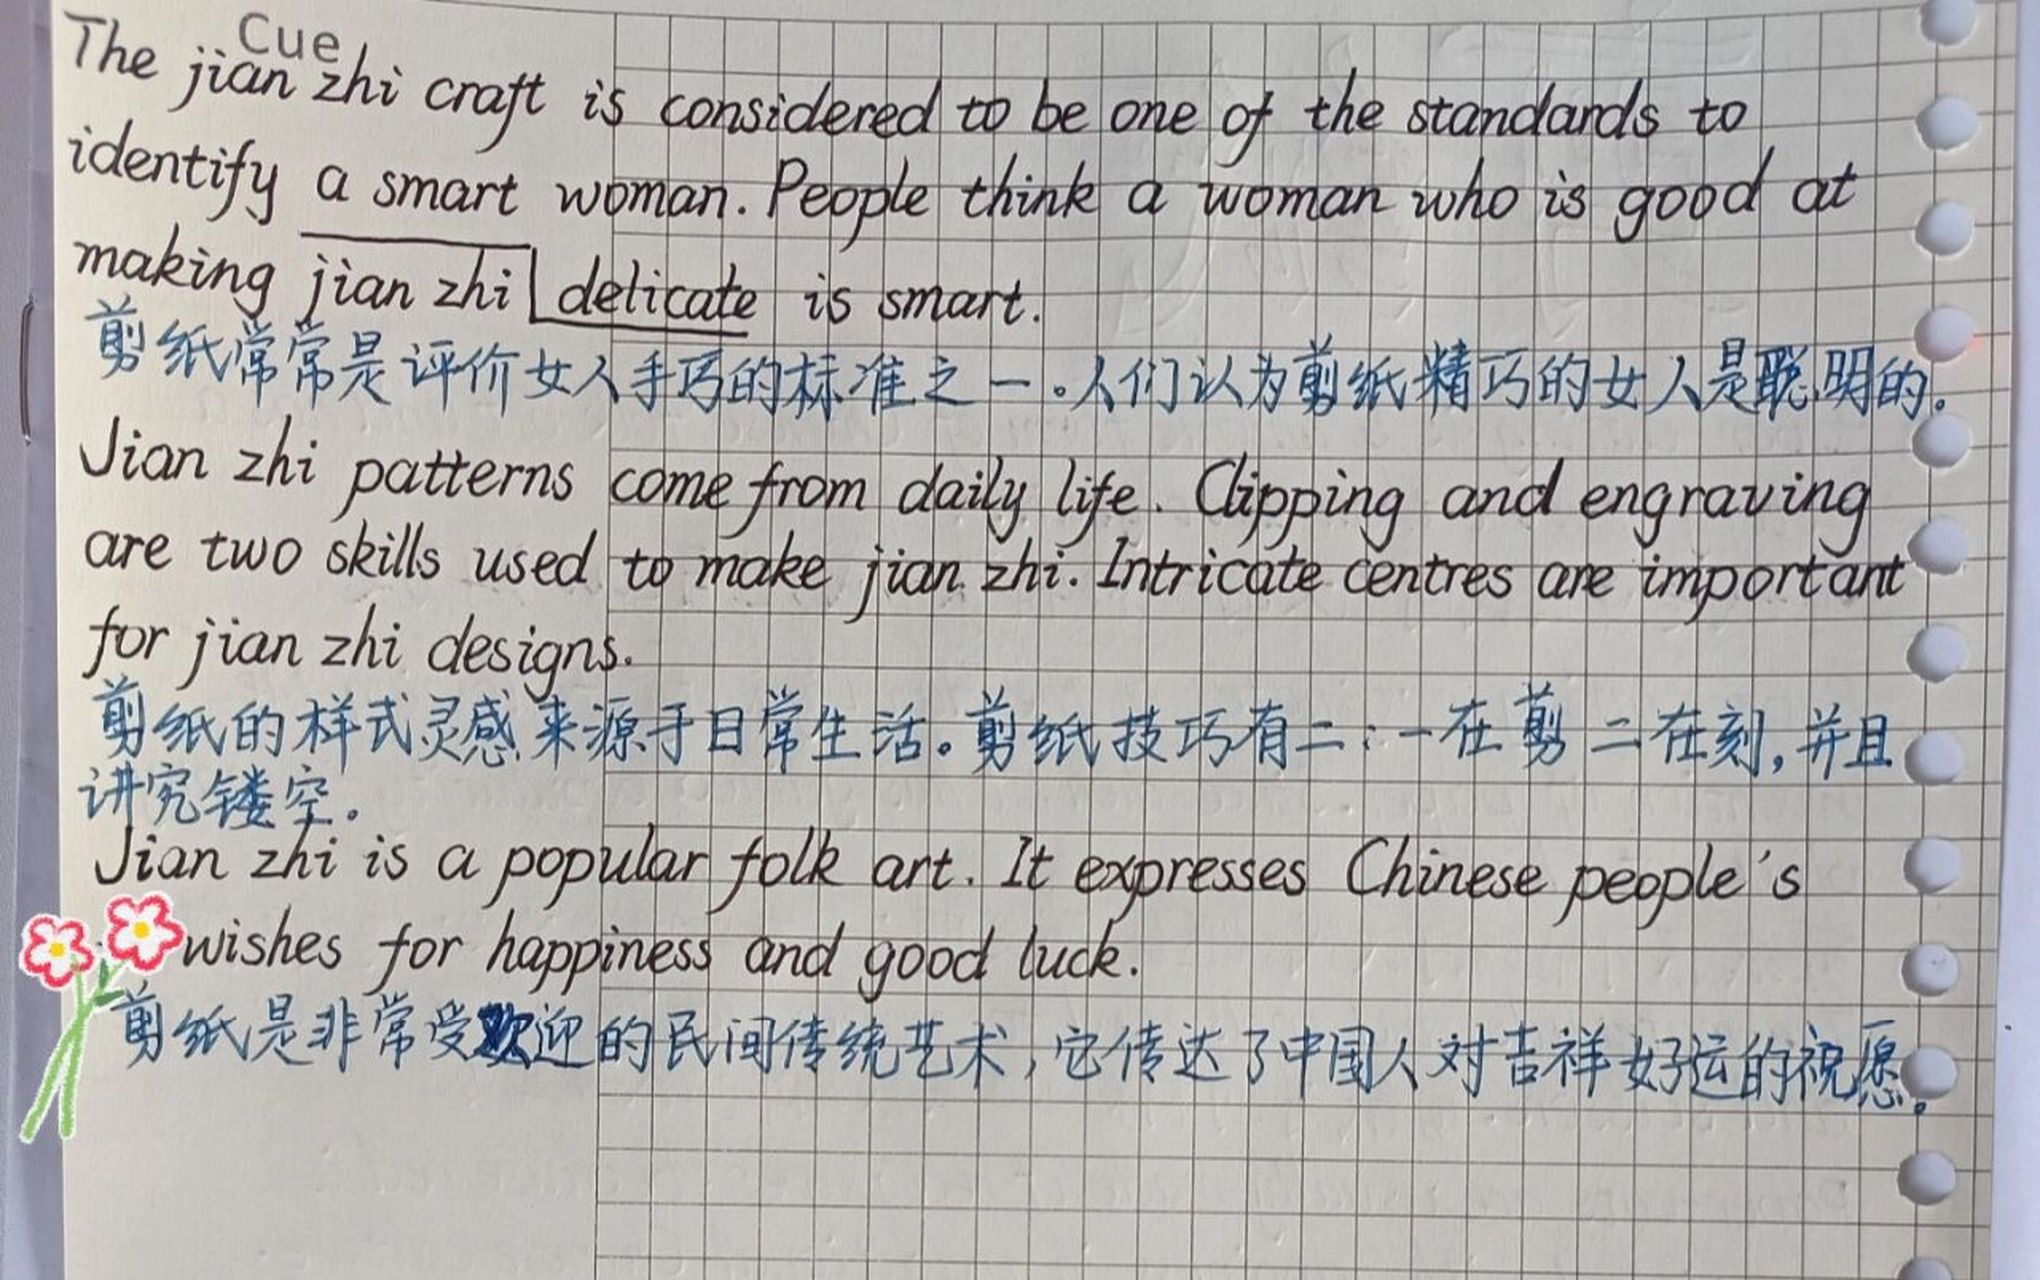 Cue
The jian zhi craft is considered to be one of the standards to
identify a smart woman. People think a woman who is good at
making jian zhi delicate is smart.
剪纸常常是评价女人手巧的标准之一。人们认为剪纸精巧的女人是聪明的。
Jian zhi patterns come from daily life. Clipping and engraving
are two skills used to make jian zhi. Intricate centres are important
for jian zhi designs.
剪纸的样式灵感来源于日常生活。剪纸技巧有二：一在剪 二在刻，并且
讲究镂空。
Jian zhi is a popular folk art. It expresses Chinese people's
wishes for happiness and good luck.
剪纸是非常受欢迎的民间传统艺术，它传达了中国人对吉祥好运的祝愿。